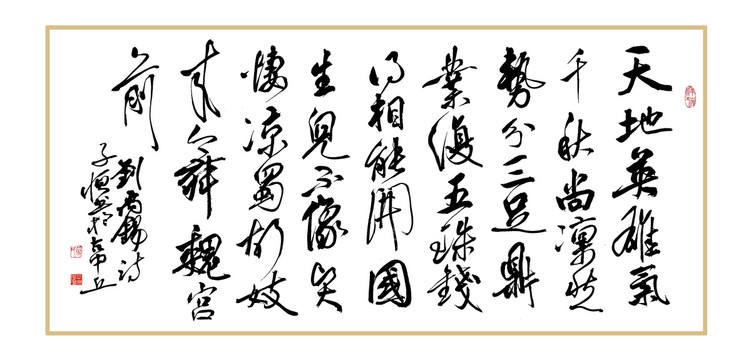 天地英雄氣
千秋尚凜然
勢分三足鼎
業復五銖錢
得相能開國
生兒不像賢
悽凉蜀故妓
来舞魏宮
前
劉禹錫詩
子恒書於帝丘